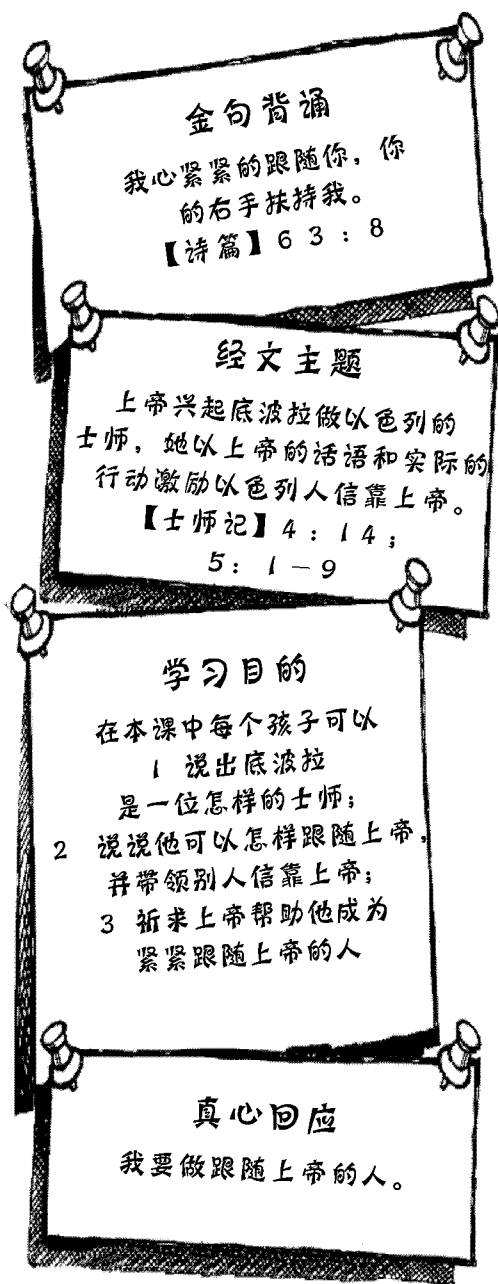 金句背诵
我心紧紧的跟随你，你
的右手扶持我。
【诗篇】63：8
经文主题
上帝兴起底波拉做以色列的
士师，她以上帝的话语和实际的
行动激励以色列人信靠上帝。
【士师记】4：14；
5：1－9
学习目的
在本课中每个孩子可以
1 说出底波拉
是一位怎样的士师；
2 说说他可以怎样跟随上帝，
并带领别人信靠上帝；
3 祈求上帝帮助他成为
紧紧跟随上帝的人
真心回应
我要做跟随上帝的人。